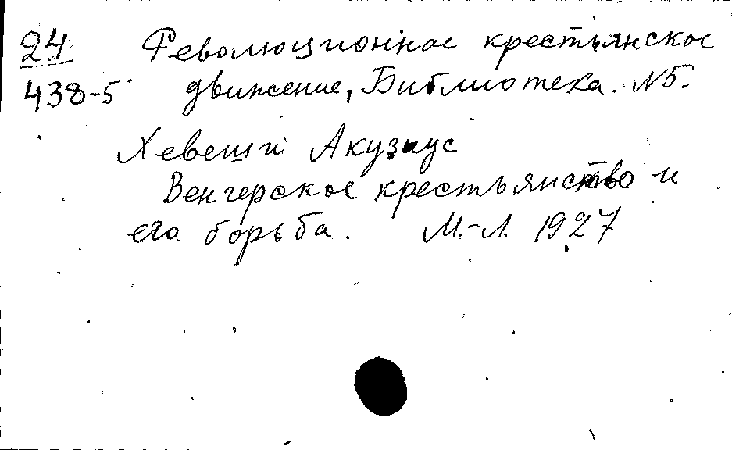 24 Революционное крестьянское
438-5 движение, Библиотека. №5.
Хевеши Акузиус
Венгерское крестьянство и
его борьба. М.-Л. 1927